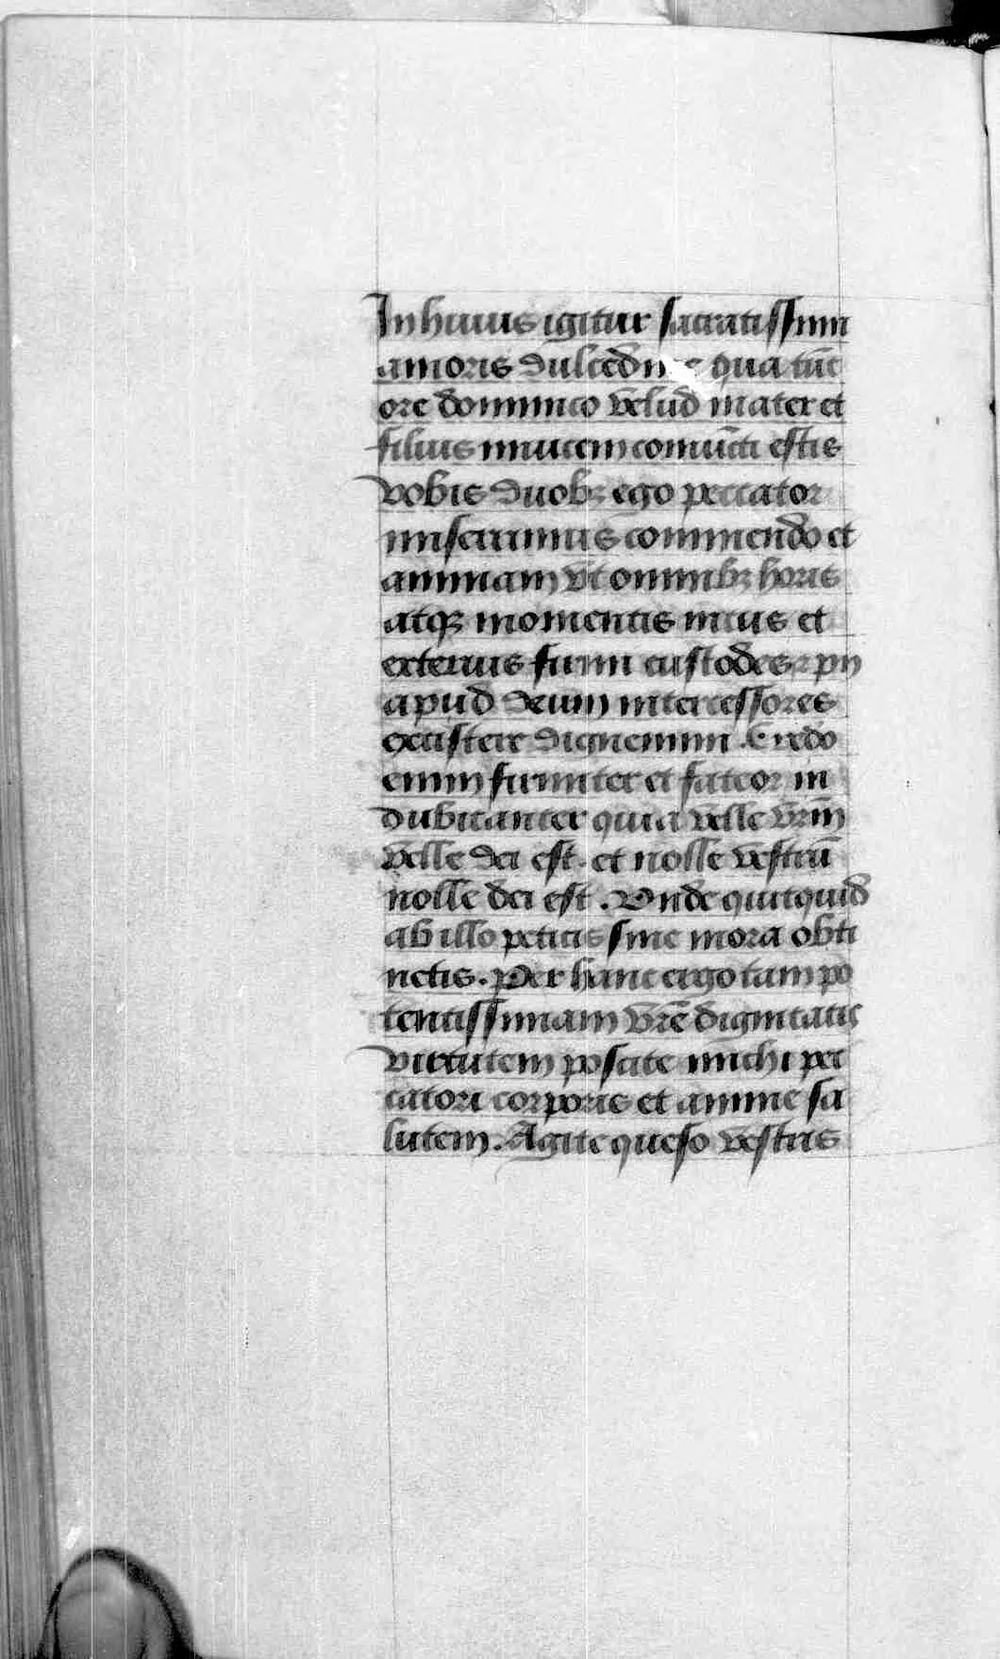 In huius igitur sacratissimi
amoris dulcedine qua tūc
ore dominico velud mater et
filius inuicem coniūcti estis
vobis duobꝫ ego peccator
miserrimus commendo et
animam vt omnibꝫ horis
atqꝫ momentis intus et
exterius firmi custodes ⁊ pij
apud deum intercessores
existere dignemini . Credo
enim firmiter et fateor in
dubitanter quia velle vr̄m
velle dei est . et nolle vestrū
nolle dei est . Vnde quitquid
ab illo petitis sine mora obti
netis . Per hanc ergo tam po
tentissimam vr̄e dignitatis
virtutem poscite michi pec
catori corporis et anime sa
lutem . Agite queso vestris